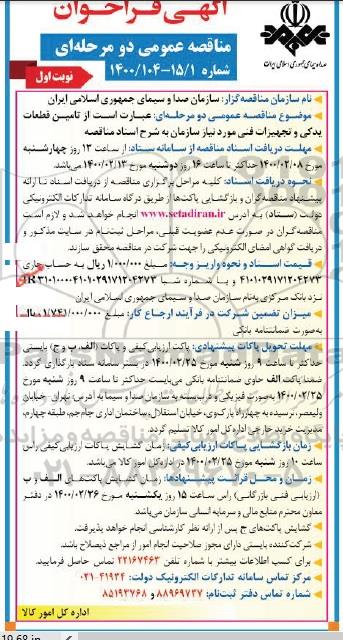 آگهی فراخوان
مناقصه عمومی دو مرحله‌ای
شماره ۱۵/۱-۱۴۰۰/۱۰۴
نوبت اول
صدا و سیمای جمهوری اسلامی ایران
نام سازمان مناقصه گزار: سازمان صدا و سیمای جمهوری اسلامی ایران
موضوع مناقصه عمومی دو مرحله‌ای: عبارت است از تامین قطعات
یدکی و تجهیزات فنی مورد نیاز سازمان به شرح اسناد مناقصه
مهلت دریافت اسناد مناقصه از سامانه ستاد: از ساعت ۱۳ روز چهارشنبه
مورخ ۱۴۰۰/۰۲/۰۸ حداکثر تا ساعت ۱۶ روز دوشنبه مورخ ۱۴۰۰/۰۲/۱۳ می‌باشد.
نحوه دریافت اسناد: کلیه مراحل برگزاری مناقصه از دریافت اسناد تا ارائه
پیشنهاد مناقصه‌گران و بازگشایی پاکت‌ها از طریق درگاه سامانه تدارکات الکترونیکی
دولت (ستاد) به آدرس www.setadiran.ir انجام خواهد شد و لازم است
مناقصه گران در صورت عدم عضویت قبلی، مراحل ثبت‌نام در سایت مذکور و
دریافت گواهی امضای الکترونیکی را جهت شرکت در مناقصه محقق سازند.
قیمت اسناد و نحوه واریز وجه: مبلغ ۱/۰۰۰/۰۰۰ ریال به حساب جاری
۴۱۰۱۰۳۹۱۷۱۲۰۴۲۷۳ و یا شماره شبا
نزد بانک مرکزی به‌نام سازمان صدا و سیمای جمهوری اسلامی ایران
میزان تضمین شرکت در فرآیند ارجاع کار: مبلغ ۱/۷۴۱/۰۰۰/۰۰۰ ریال
به‌صورت ضمانتنامه بانکی
مهلت تحویل پاکات پیشنهادی: پاکت ارزیابی کیفی و پاکات (الف، ب و ج) بایستی
حداکثر تا ساعت ۹ روز شنبه مورخ ۱۴۰۰/۰۲/۲۵ در بستر سامانه ستاد بارگذاری گردد.
ضمنا پاکت الف حاوی ضمانتنامه بانکی می‌بایست حداکثر تا ساعت ۹ روز شنبه مورخ
۱۴۰۰/۰۲/۲۵ به‌صورت فیزیکی و غربیسته به سازمان صدا و سیما به آدرس: تهران- خیابان
ولیعصر، نرسیده به چهارراه پارک‌وی، خیابان استقلال، ساختمان اداری جام‌جم، طبقه چهارم،
مدیریت خرید خارجی اداره کل امور کالا تسلیم گردد.
زمان بازگشایی پاکات ارزیابی کیفی: زمان گشایش پاکات ارزیابی کیفی راس
ساعت ۱۰ روز شنبه مورخ ۱۴۰۰/۰۲/۲۵ در اداره کل امور کالا می‌باشد.
زمان و محل قرائت پیشنهادها: زمان گشایش پاکت‌های الف و ب
(ارزیابی فنی بازرگانی) راس ساعت ۱۵ روز یکشنبه مورخ ۱۴۰۰/۰۲/۲۶ در دفتر
معاون محترم منابع مالی و سرمایه انسانی سازمان می‌باشد.
گشایش پاکت‌های ج پس از ارائه نظر کارشناسی انجام خواهد پذیرفت.
شرکت‌کننده بایستی دارای مجوز صلاحیت انجام امور از مراجع ذیصلاح باشد.
برای کسب اطلاعات بیشتر با شماره تلفن ۲۲۱۶۷۴۶۳ تماس حاصل فرمایید.
مرکز تماس سامانه تدارکات الکترونیک دولت: ۴۱۹۳۴-۰۲۱
شماره تماس دفتر ثبت‌نام: ۸۸۹۶۹۷۳۷ و ۸۵۱۹۳۷۶۸
اداره کل امور کالا